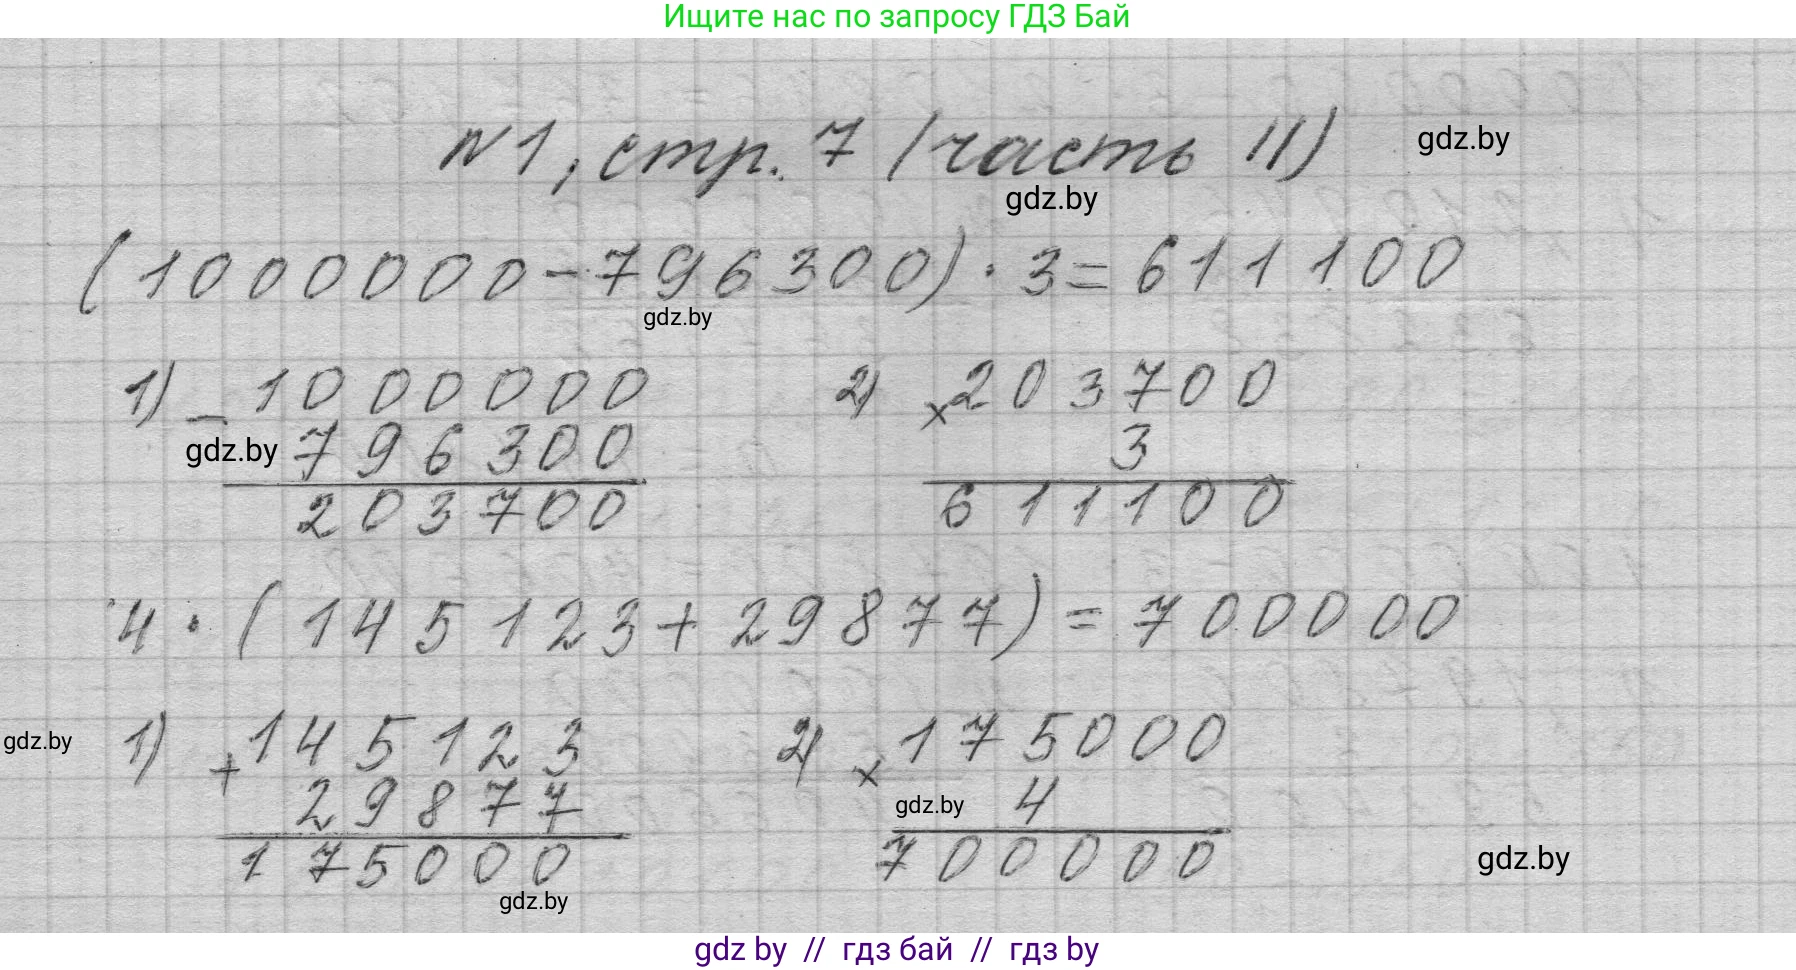 Ищите нас по запросу ГДЗ Бай
№1, стр. 7 (часть II)
gdz.by
gdz.by
(1000000-796300)·3=611100
gdz.by
1) - 1000000
2) x 203700
gdz.by
796300
3
203700
611100
4·(145123+29877)=700000
gdz.by
1) + 145123
2) x 175000
29877
gdz.by
4
175000
700000
gdz.by
gdz.by
gdz by // гдз бай // гдз by